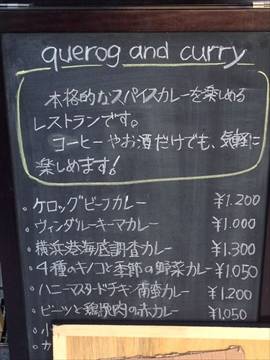 querog and curry
本格的なスパイスカレーを楽しめる
レストランです。
コーヒーやお酒だけでも、気軽に
楽しめます!
ケロッグビーフカレー ¥1.200
ヴィンダルーキーマカレー ¥1.000
横浜港海底調査カレー ¥1,300
4種のキノコと季節の野菜カレー ¥1,050
ハニーマスタードチキン南蛮カレー ¥1,200
ビーンズと鶏挽肉の赤カレー ¥1,050